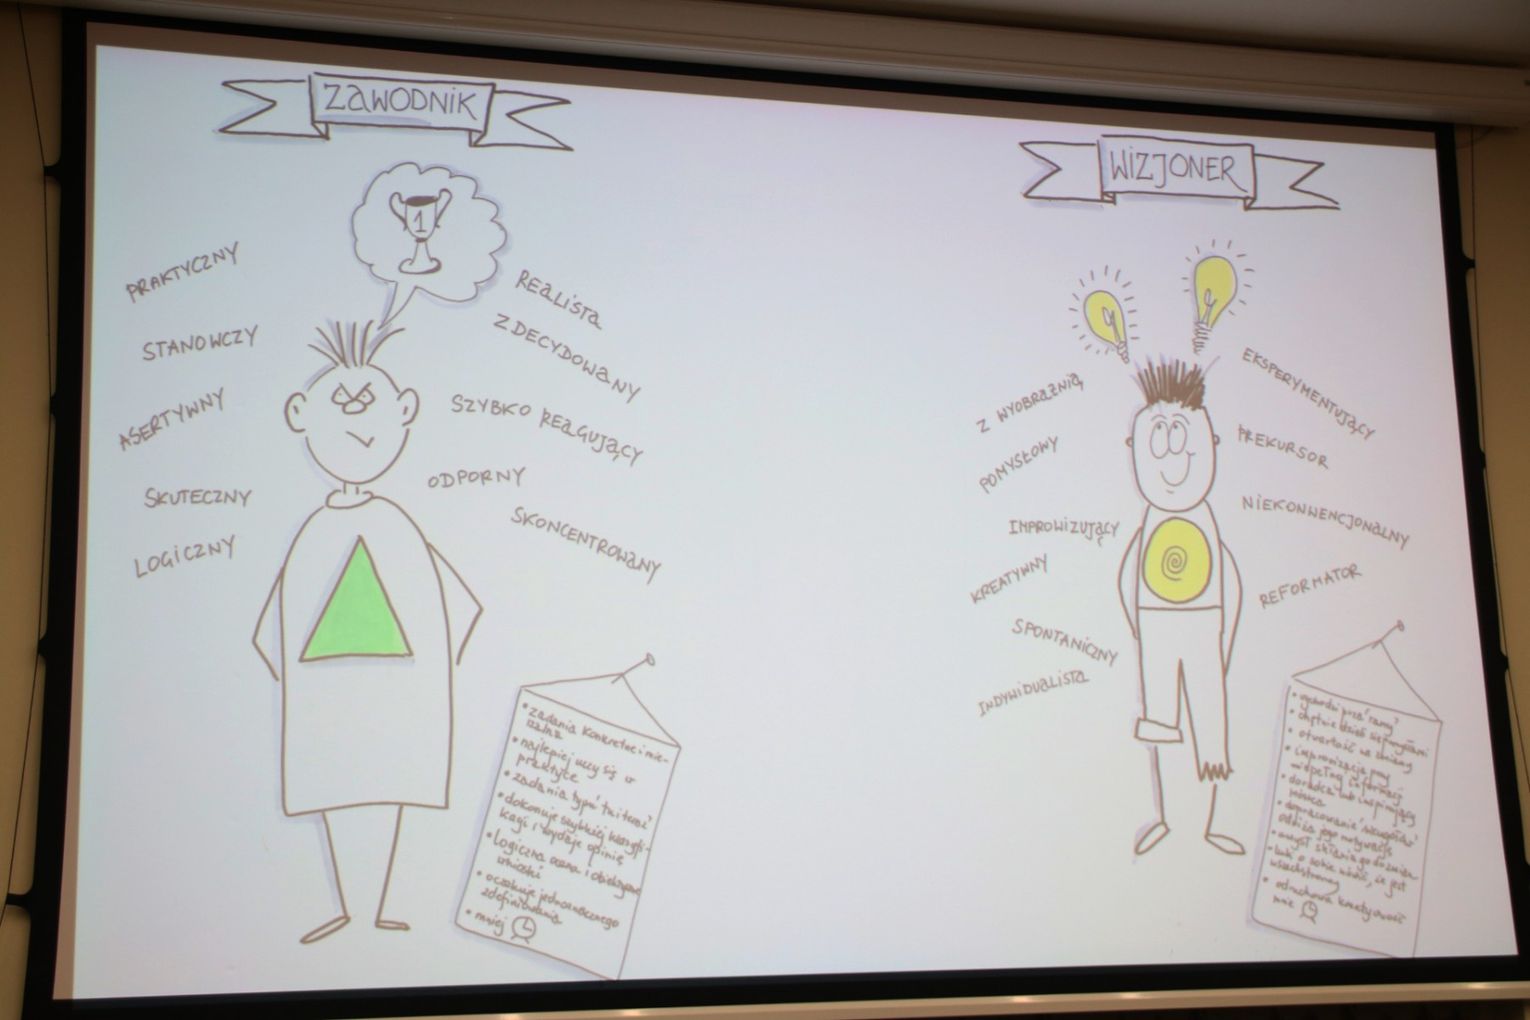 ZAWODNIK
1
PRAKTYCZNY
STANOWCZY
ASERTYWNY
SKUTECZNY
LOGICZNY
REALISTA
ZDECYDOWANY
SZYBKO REAGUJĄCY
ODPORNY
SKONCENTROWANY
• zadania konkretne i mie-
rzalne
• najlepiej uczy się w
praktyce
• zadania typu "tu i teraz"
• dokonuje szybkiej
i wydaje opinię
• logiczna ocena i obiektywne
wnioski
• oczekuje jednoznacznego
zdefiniowania
• mniej
WIZJONER
Z WYOBRAŹNIĄ
POMYSŁOWY
IMPROWIZUJĄCY
KREATYWNY
SPONTANICZNY
INDYWIDUALISTA
EKSPERYMENTUJĄCY
PREKURSOR
NIEKONWENCJONALNY
REFORMATOR
• wychodzi poza ramy
• chętnie dzieli się pomysłami
• otwartość na zmiany
• improwizacja przy
niepełnej informacji
• doradca lub inspirujący
mówca
• dopracowanie szczegółów
odbiera jego motywację
• umysł skłania go do zmian
• lubi o sobie mówić, że jest
wszechstronny
• odruchowa kreatywność